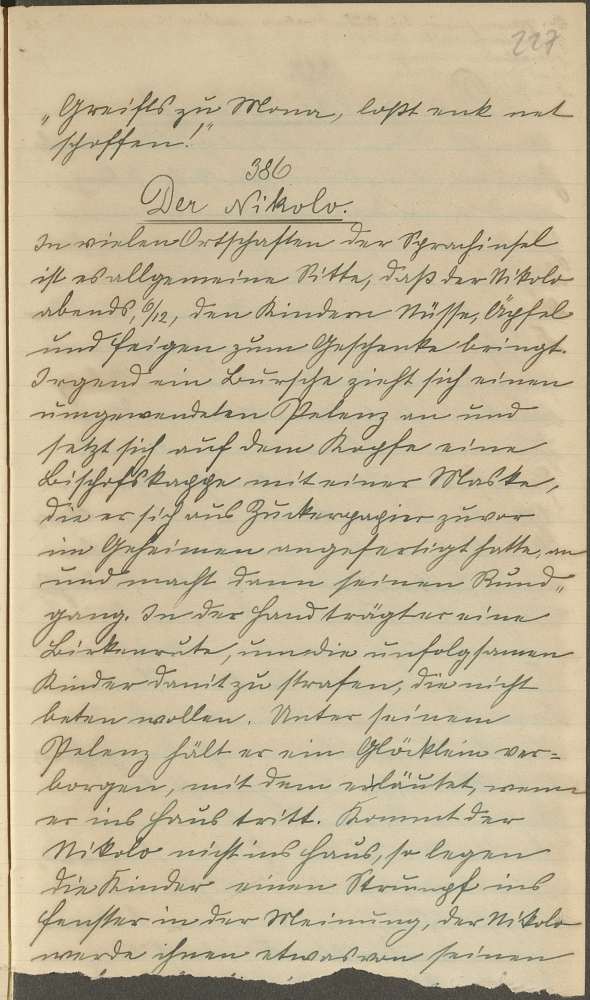 227
„Greifts zu Mona, loßt enk net
schoffen!"
386
Der Nikolo.
In vielen Ortschaften der Sprachinsel
ist es allgemeine Sitte, daß der Nikolo
abends, 6/12, den Kindern Nüsse, Äpfel
und Feigen zum Geschenke bringt.
Irgend ein Bursche zieht sich einen
umgewendeten Pelenz an und
setzt sich auf dem Kopfe eine
Bischofskappe mit einer Maske,
die er sich aus Zuckerpapier zuvor
im Geheimen angefertigt hatte, an
und macht dann seinen Rund„
gang. In der Hand trägt er eine
Birkenrute, um die unfolgsamen
Kinder damit zu strafen, die nicht
beten wollen. Unter seinem
Pelenz hält er ein Glöcklein ver=
borgen, mit dem er läutet, wenn
er ins Haus tritt. Kommt der
Nikolo nicht ins Haus, so legen
die Kinder einen Strumpf ins
Fenster in der Meinung, der Nikolo
werde ihnen etwas von seinen